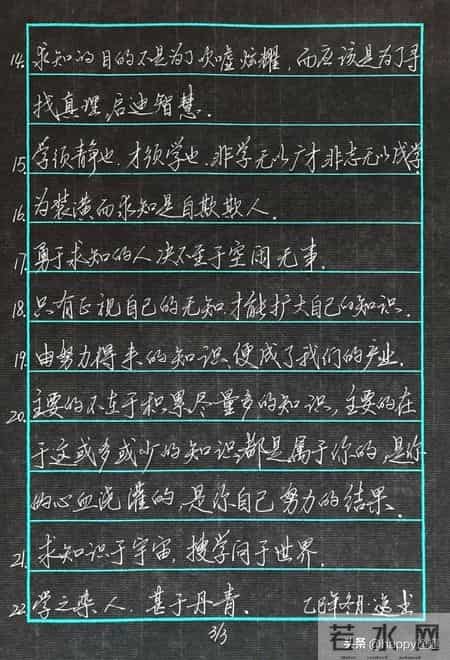 14. 求知的目的不是为了吹嘘炫耀，而应该是为了寻
找真理，启迪智慧．
15 学须静也．才须学也．非学无以广才，非志无以成学
16、为装潢而求知是自欺欺人．
17、勇于求知的人决不至于空闲无事．
18、只有正视自己的无知，才能扩大自己的知识．
19、由努力得来的知识，便成了我们的产业．
20、主要的不在于积累尽量多的知识，主要的在
于这或多或少的知识，都是属于你的，是你
的心血浇灌的，是你自己努力的结果．
21、求知识于宇宙，搜学问于世界．
22、学之染人．甚于丹青． 乙巳年冬月·逸尘
3/3
头条 @huppy201
若水网